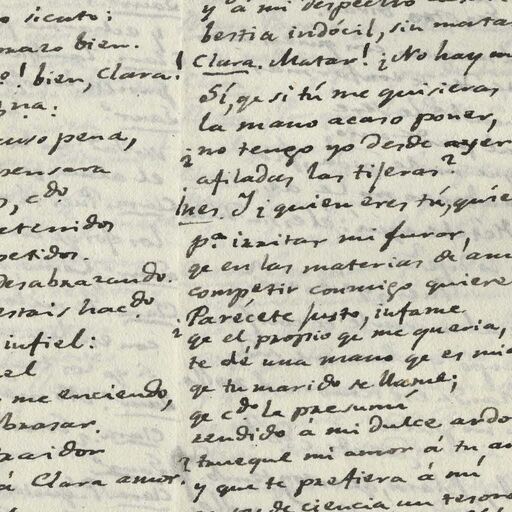 o siento:
mazo bien.
o! bien, Clara!
una:
cuso pena,
pensara
s, cdo
etenidos
petidos.
desabrazando.
estais hacdo
infiel:
el
me enciendo,
abrasar.
traidor
á Clara amor.
y á mi despecho
bestia indócil, sin matar
Clara. Matar! ¡No hay
Sí, qe si tú me quisieras
la mano acaso poner,
¿no tengo yo desde ayer
afiladas las tijeras?
Ines. Y ¿quien eres tú,
pa irritar mi furor,
qe en las materias de
competir conmigo quiere
¿Parécete justo, infame
qe el propio qe me queria,
te dé una mano qe es mia
qe tu marido se llame;
qe cdo la presumí
rendido á mi dulce ardo
trueque mi amor á tu
y que te prefiera á mí
de ciencia un tesoro